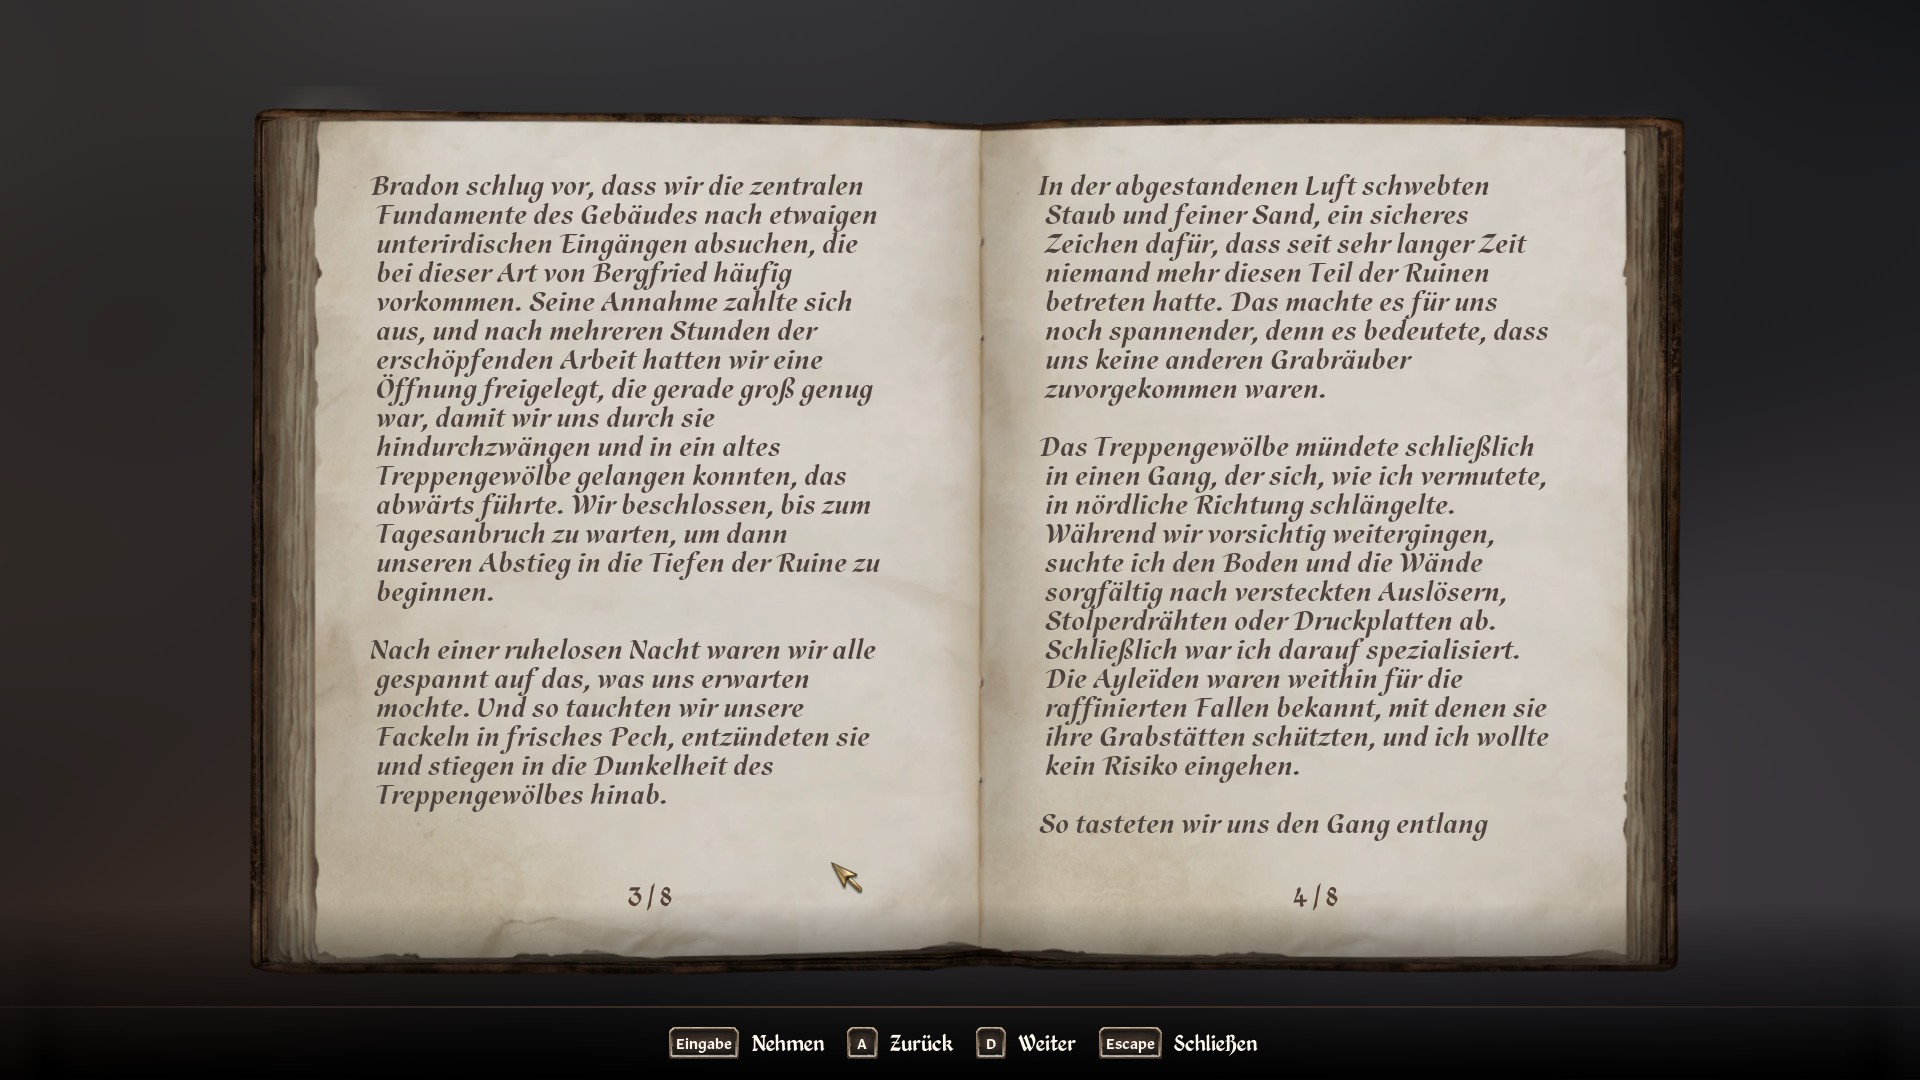 Bradon schlug vor, dass wir die zentralen
Fundamente des Gebäudes nach etwaigen
unterirdischen Eingängen absuchen, die
bei dieser Art von Bergfried häufig
vorkommen. Seine Annahme zahlte sich
aus, und nach mehreren Stunden der
erschöpfenden Arbeit hatten wir eine
Öffnung freigelegt, die gerade groß genug
war, damit wir uns durch sie
hindurchzwängen und in ein altes
Treppengewölbe gelangen konnten, das
abwärts führte. Wir beschlossen, bis zum
Tagesanbruch zu warten, um dann
unseren Abstieg in die Tiefen der Ruine zu
beginnen.
Nach einer ruhelosen Nacht waren wir alle
gespannt auf das, was uns erwarten
mochte. Und so tauchten wir unsere
Fackeln in frisches Pech, entzündeten sie
und stiegen in die Dunkelheit des
Treppengewölbes hinab.
3/8
In der abgestandenen Luft schwebten
Staub und feiner Sand, ein sicheres
Zeichen dafür, dass seit sehr langer Zeit
niemand mehr diesen Teil der Ruinen
betreten hatte. Das machte es für uns
noch spannender, denn es bedeutete, dass
uns keine anderen Grabräuber
zuvorgekommen waren.
Das Treppengewölbe mündete schließlich
in einen Gang, der sich, wie ich vermutete,
in nördliche Richtung schlängelte.
Während wir vorsichtig weitergingen,
suchte ich den Boden und die Wände
sorgfältig nach versteckten Auslösern,
Stolperdrähten oder Druckplatten ab.
Schließlich war ich darauf spezialisiert.
Die Ayleïden waren weithin für die
raffinierten Fallen bekannt, mit denen sie
ihre Grabstätten schützten, und ich wollte
kein Risiko eingehen.
So tasteten wir uns den Gang entlang
4/8
Eingabe Nehmen A Zurück D Weiter Escape Schließen